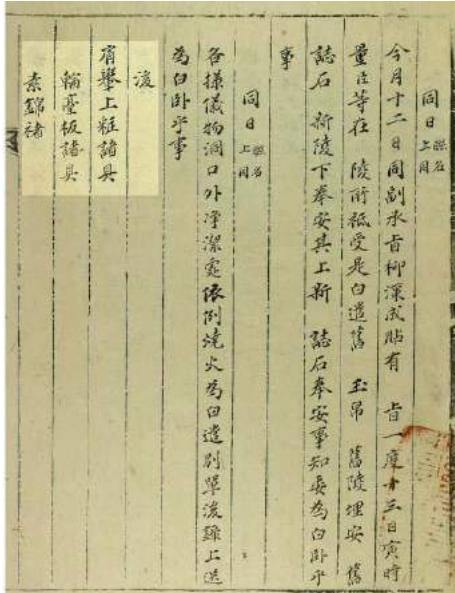 同日 縣名上同
今月十二日同副承旨柳深成貼有 旨一度十三日寅時
量臣等在 陵所祗受是白遣舊 玉帛 舊陵埋安 舊
誌石 新陵下奉安其上新 誌石奉安事知委爲白卧乎
事
同日 縣名上同
各樣儀物洞口外淨潔處依例燒火爲白遣別單後錄上送
爲白卧乎事
後
肩輿上粧諸具
輪臺板諸具
素錦褚